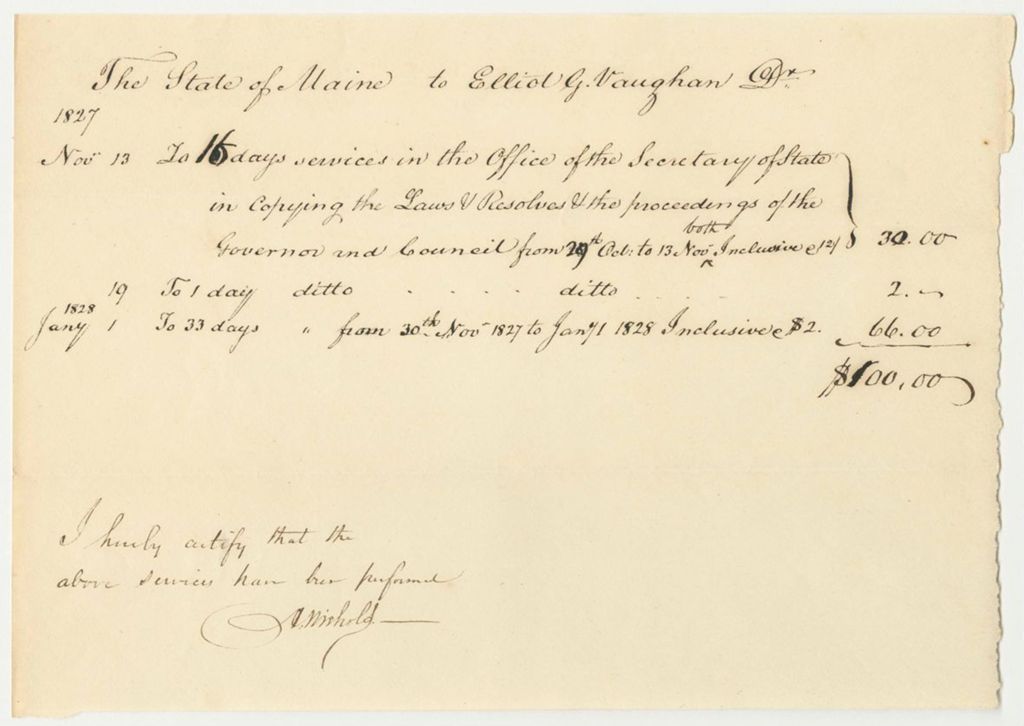 The State of Maine to Elliot G. Vaughan Dr.
1827
Nov 13 To 16 days services in the Office of the Secretary of State
in Copying the Laws & Resolves & the proceedings of the
both
Governor and Council from 29th Oct: to 13 Nov Inclusive @ 12/ 32.00
19 To 1 day ditto . . . . ditto . . . . 2. ~
1828
Jany 1 To 33 days " from 30th Nov 1827 to Jany 1 1828 Inclusive @ $2. 66.00
$100,00
I hereby certify that the
above services have been performed
A. Nichols